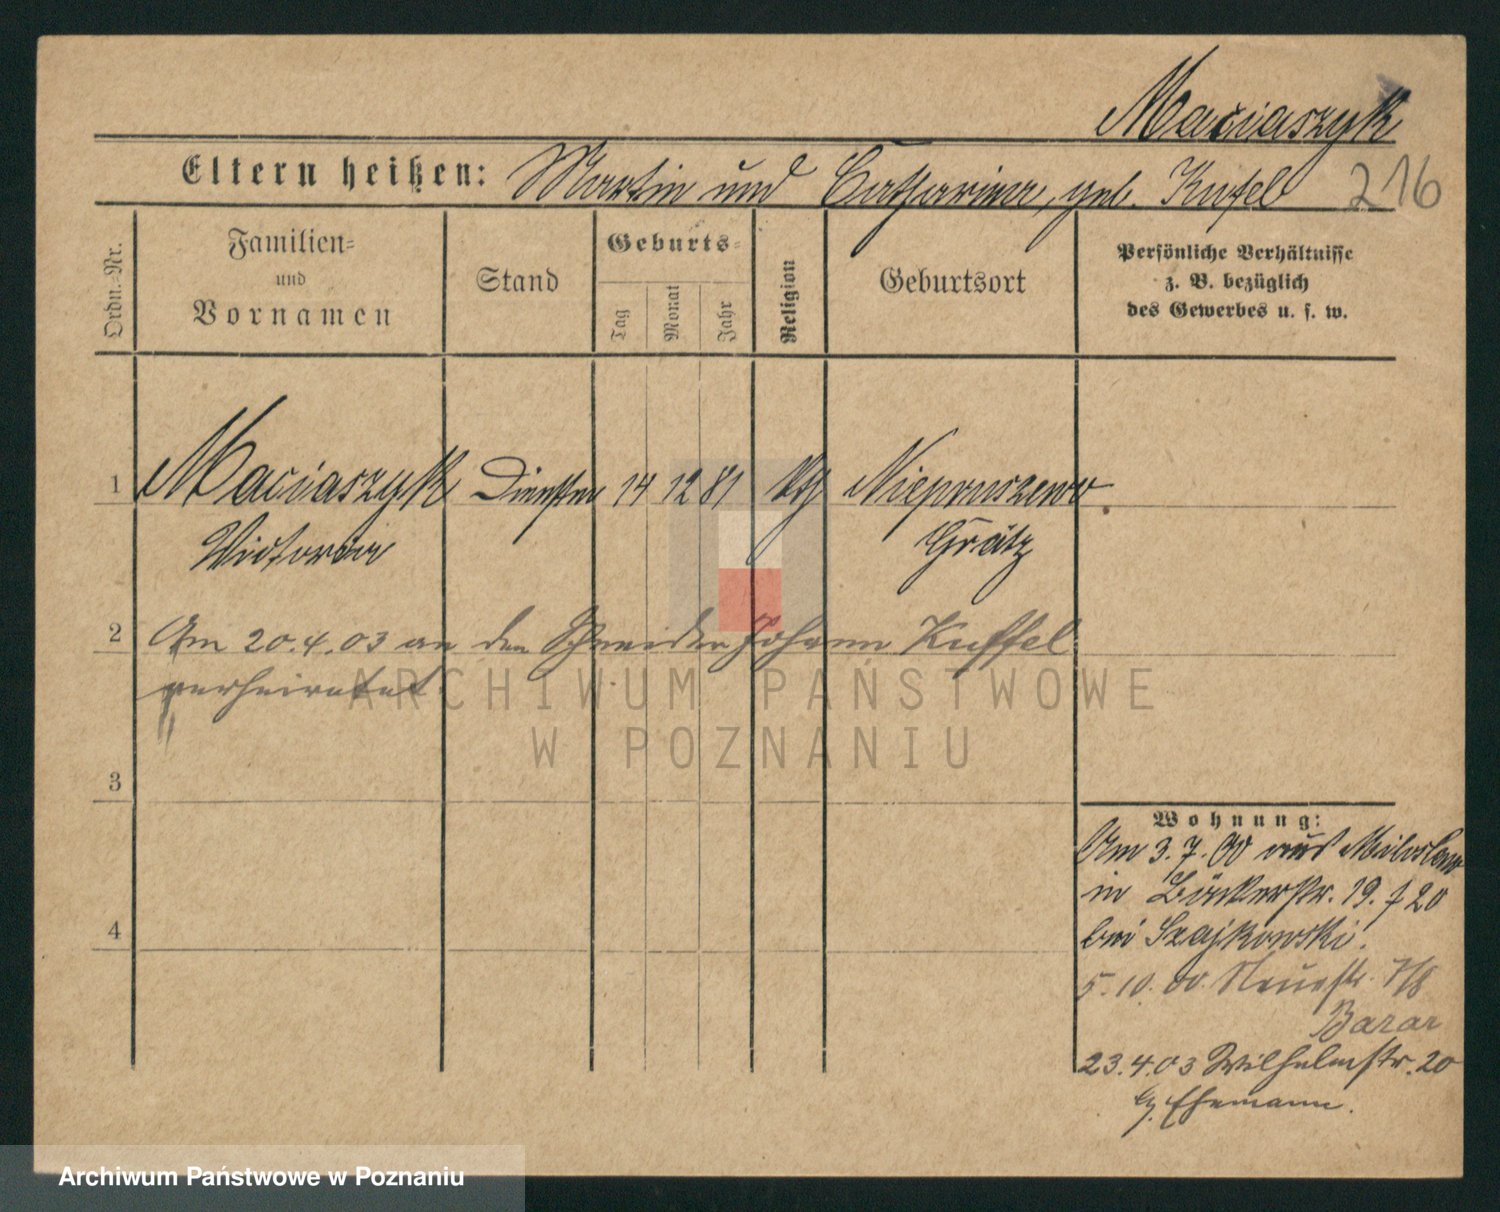 Maciaszyk
Eltern heißen: Martin und Catharina, geb. Kufel 216
Ordn.-Nr.
Familien-
und
Vornamen
Stand
Geburts-
Tag
Monat
Jahr
Religion
Geburtsort
Persönliche Verhältnisse
z. B. bezüglich
des Gewerbes u. s. w.
1 Maciaszyk 14 12 81 kth Niepruszewo
Victoria Grätz
2 Am 20.4.03 an den Schneider Johann Kuffel
verheiratet.
ARCHIWUM PAŃSTWOWE
W POZNANIU
3
4
Wohnung:
Am 3.7.00 aus Miloslaw
in Bäckerstr. 19. 20
bei Szajkowski.
5.10.00. Neuestr. 7/8
Bazar
23.4.03 Wilhelmstr. 20
Ehemann.
Archiwum Państwowe w Poznaniu